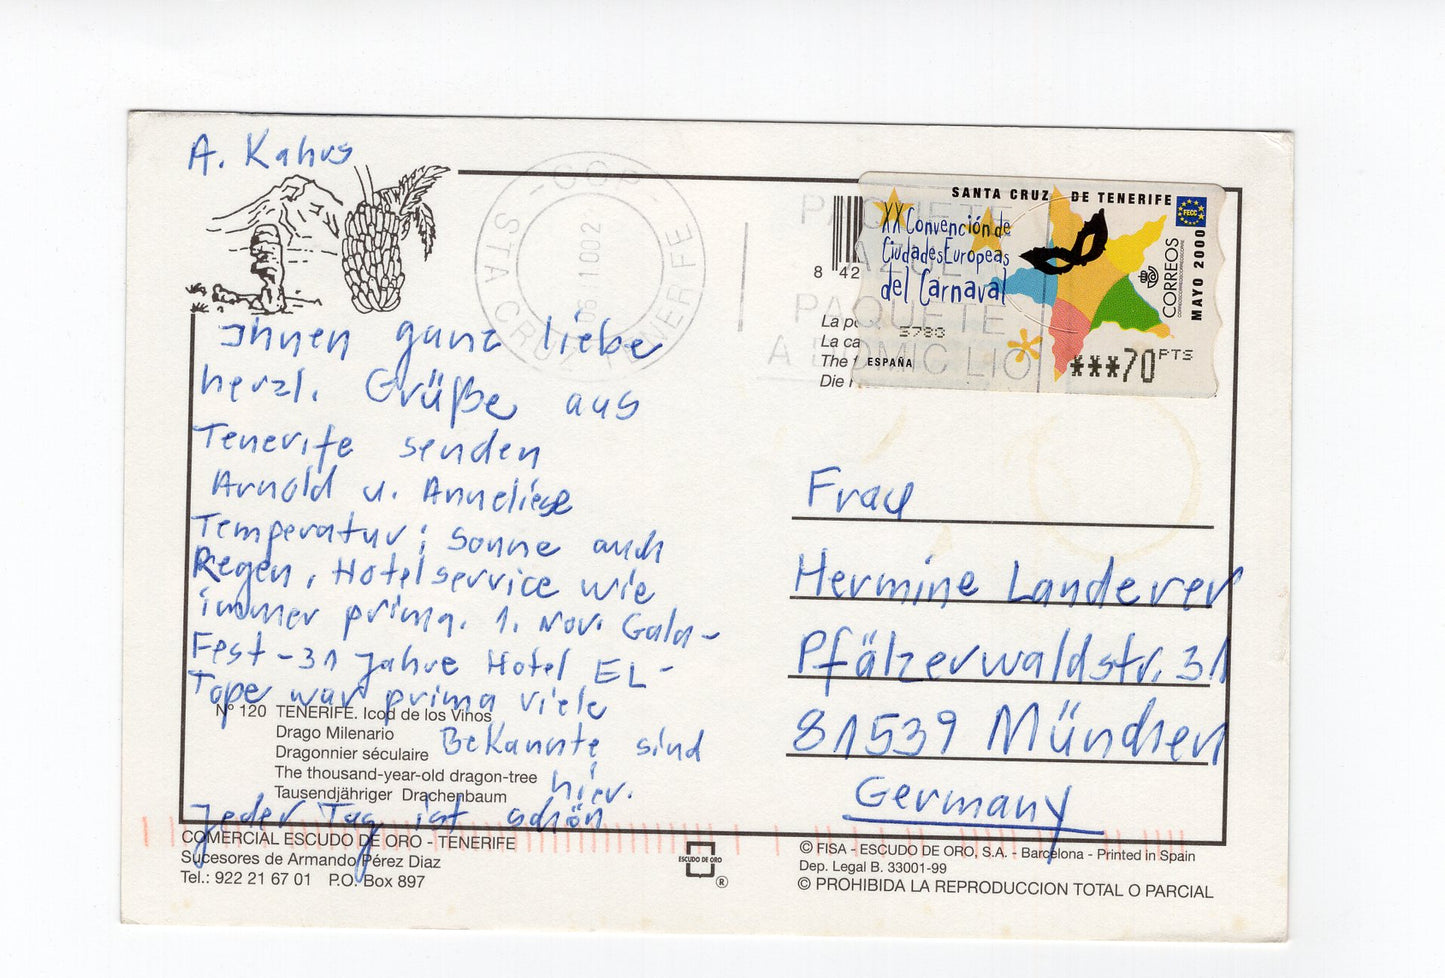 A. Kahus
Ihnen ganz liebe
herzl. Grüße aus
Tenerife senden
Arnold u. Anneliese
Temperatur; Sonne auch
Regen, Hotelservice wie
immer prima. 1. Nov. Gala-
Fest-31 Jahre Hotel EL-
Tope war prima viele
Bekannte sind
hier.
Jeder Tag ist schön
Nº 120 TENERIFE. Icod de los Vinos
Drago Milenario
Dragonnier séculaire
The thousand-year-old dragon-tree
Tausendjähriger Drachenbaum
COMERCIAL ESCUDO DE ORO - TENERIFE
Sucesores de Armando Pérez Diaz
Tel.: 922 21 67 01 P.O. Box 897
ESCUDO DE ORO
®
STA CRUZ TENERIFE
PAQUETE
A DOMICILIO
8 42
La
La ca
The
Die
SANTA CRUZ DE TENERIFE
XX Convención de
Ciudades Europeas
del Carnaval
FECC
CORREOS
MAYO 2000
5783
ESPAÑA
***70 PTS
Frau
Hermine Landerer
Pfälzerwaldstr. 31
81539 München
Germany
© FISA - ESCUDO DE ORO, S.A. - Barcelona - Printed in Spain
Dep. Legal B. 33001-99
© PROHIBIDA LA REPRODUCCION TOTAL O PARCIAL